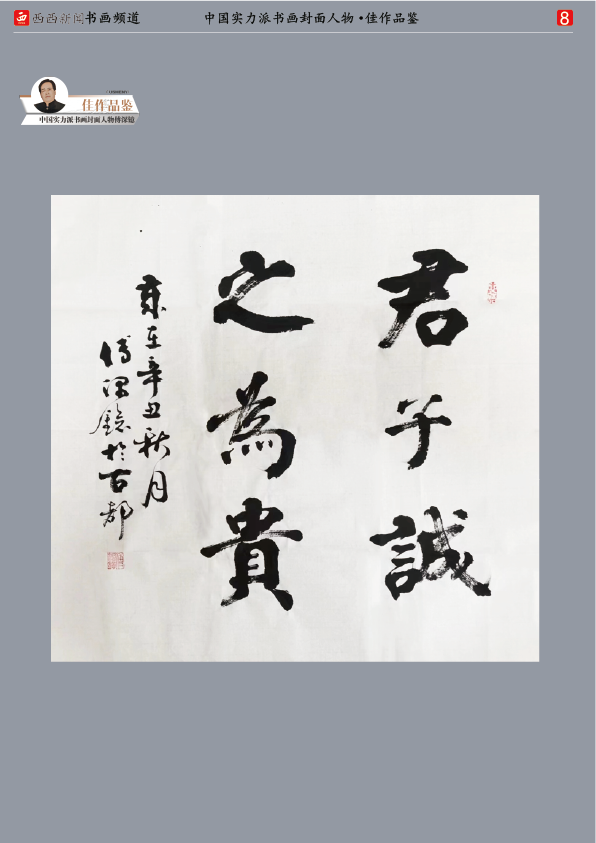 西西新闻书画频道
中国实力派书画封面人物·佳作品鉴
8
佳作品鉴
中国实力派书画封面人物傅深镱
君子誠
之為貴
歲在辛丑秋月
傅深鐿於古都